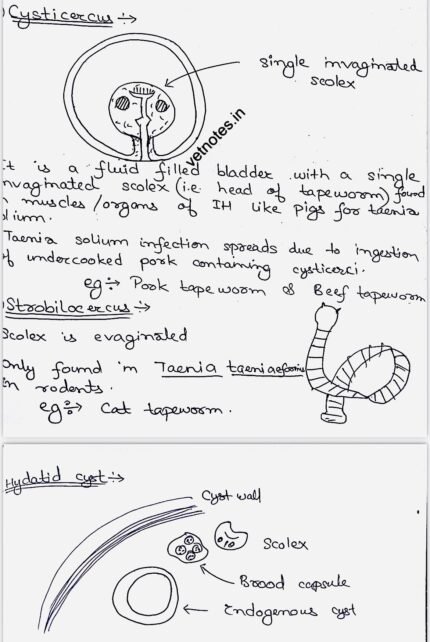 Cysticercus :→
single invaginated
scolex
vetnotes.in
It is a fluid filled bladder with a single
invaginated scolex (i.e head of tapeworm) found
in muscles/organs of IH like pigs for taenia
solium.
Taenia solium infection spreads due to ingestion
of undercooked pork containing cysticerci.
eg :→ Pork tape worm & Beef tapeworm
Strobilocercus :→
Scolex is evaginated
Only found in Taenia taeniaeformis
In rodents.
eg :→ Cat tapeworm.
Hydatid cyst :→
Cyst wall
Scolex
Brood capsule
Endogenous cyst